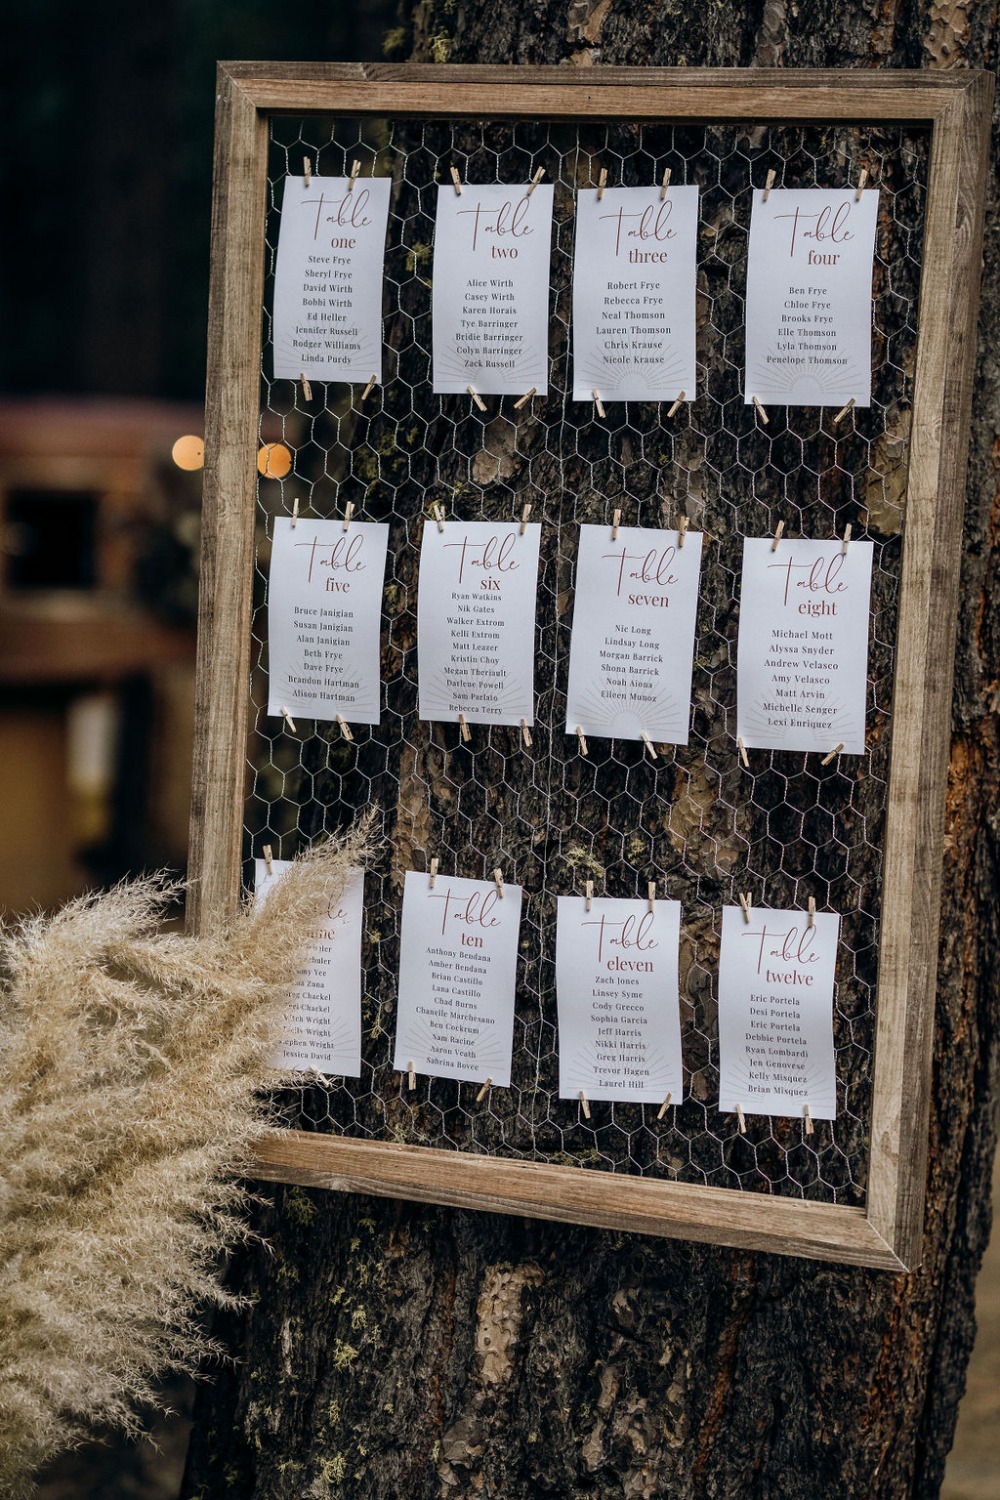 Table
one
Steve Frye
Sheryl Frye
David Wirth
Bobbi Wirth
Ed Heller
Jennifer Russell
Rodger Williams
Linda Purdy
Table
two
Alice Wirth
Casey Wirth
Karen Horais
Tye Barringer
Bridie Barringer
Colyn Barringer
Zack Russell
Table
three
Robert Frye
Rebecca Frye
Neal Thomson
Lauren Thomson
Chris Krause
Nicole Krause
Table
four
Ben Frye
Chloe Frye
Brooks Frye
Elle Thomson
Lyla Thomson
Penelope Thomson
Table
five
Bruce Janigian
Susan Janigian
Alan Janigian
Beth Frye
Dave Frye
Brandon Hartman
Alison Hartman
Table
six
Ryan Watkins
Nik Gates
Walker Extrom
Kelli Extrom
Matt Leazer
Kristin Choy
Megan Theriault
Darlene Powell
Sam Parlato
Rebecca Terry
Table
seven
Nic Long
Lindsay Long
Morgan Barrick
Shona Barrick
Noah Aiona
Eileen Munoz
Table
eight
Michael Mott
Alyssa Snyder
Andrew Velasco
Amy Velasco
Matt Arvin
Michelle Senger
Lexi Enriquez
Yee
Zana
Chackel
Chackel
Wright
Wright
Wright
Jessica David
Table
ten
Anthony Bendana
Amber Bendana
Brian Castillo
Lana Castillo
Chad Burns
Chanelle Marchesano
Ben Cockrum
Sam Racine
Aaron Veath
Sabrina Bovee
Table
eleven
Zach Jones
Linsey Syme
Cody Grecco
Sophia Garcia
Jeff Harris
Nikki Harris
Greg Harris
Trevor Hagen
Laurel Hill
Table
twelve
Eric Portela
Desi Portela
Eric Portela
Debbie Portela
Ryan Lombardi
Jen Genovese
Kelly Misquez
Brian Misquez